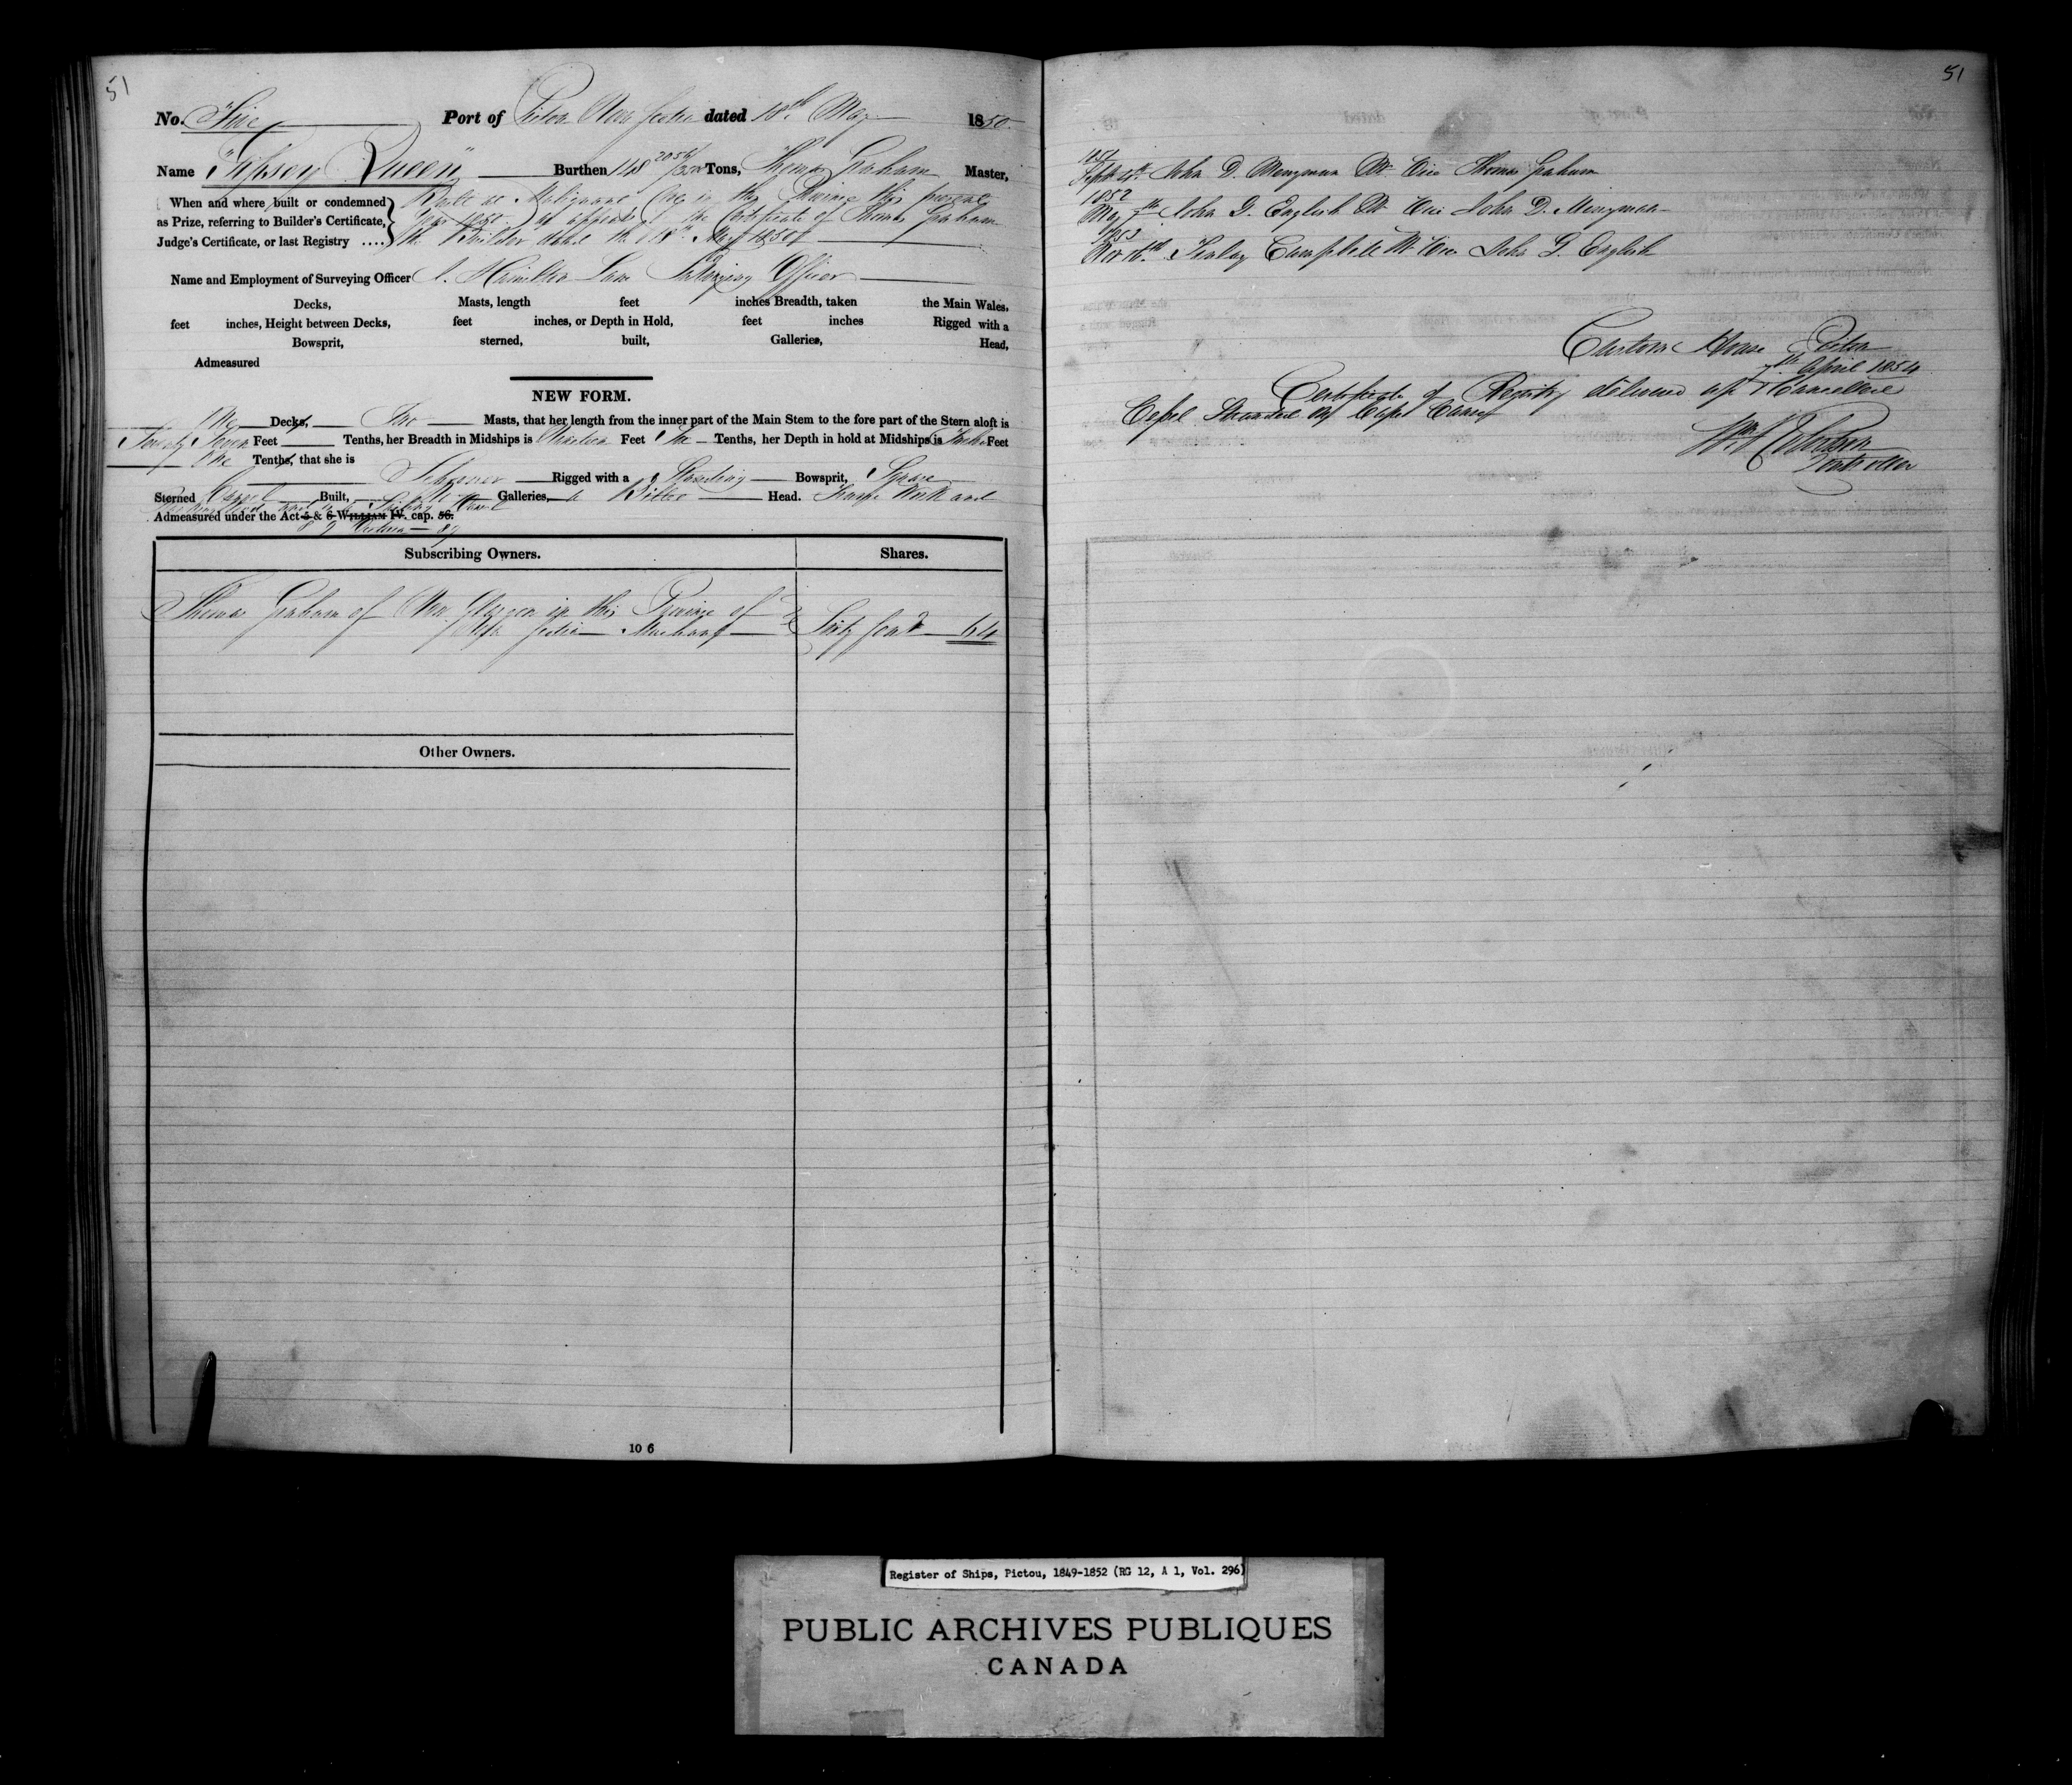 51
No. Five Port of Pictou Nova Scotia dated 18th May 1850.
Name "Gipsey Queen" Burthen 148 2056/3500 Tons, Thomas Graham Master,
When and where built or condemned
as Prize, referring to Builder's Certificate,
Judge's Certificate, or last Registry ....
Built at Malignant Cove in this Province this present
Year 1850. as appears by the Certificate of Thomas Graham
the Builder dated the 18th May 1850
Name and Employment of Surveying Officer J. Hamilton Lane Surveying Officer
Decks, Masts, length feet inches Breadth, taken the Main Wales,
feet inches, Height between Decks, feet inches, or Depth in Hold, feet inches Rigged with a
Bowsprit, sterned, built, Galleries, Head,
Admeasured
NEW FORM.
One Decks, Two Masts, that her length from the inner part of the Main Stem to the fore part of the Stern aloft is
Seventy Seven Feet Tenths, her Breadth in Midships is Nineteen Feet One Tenths, her Depth in hold at Midships is Twelve Feet
One Tenths, that she is
Schooner Rigged with a Standing Bowsprit, Square
Sterned Carvel Built, No Galleries, a Billet Head.
Admeasured under the Act 5 & 6 WILLIAM IV. cap. 56.
8 & 9 Victoria 89
Subscribing Owners. Shares.
Thomas Graham of New Glasgow in this Province of
Nova Scotia Merchant Sixty four 64
Other Owners.
10 6
51
1851
Sept 4th John D. Merryman Mr. Vice Thomas Graham
1852
May 7th John G. English Mr Vice John D. Merryman
1853
Nov 16th Finlay Campbell Mr. Vice John G. English
Custom House Pictou
7th April 1854
Certificate of Registry delivered up & Cancelled
Vessel Stranded at Cape Canso
Controller
Register of Ships, Pictou, 1849-1852 (RG 12, A 1, Vol. 296)
PUBLIC ARCHIVES PUBLIQUES
CANADA